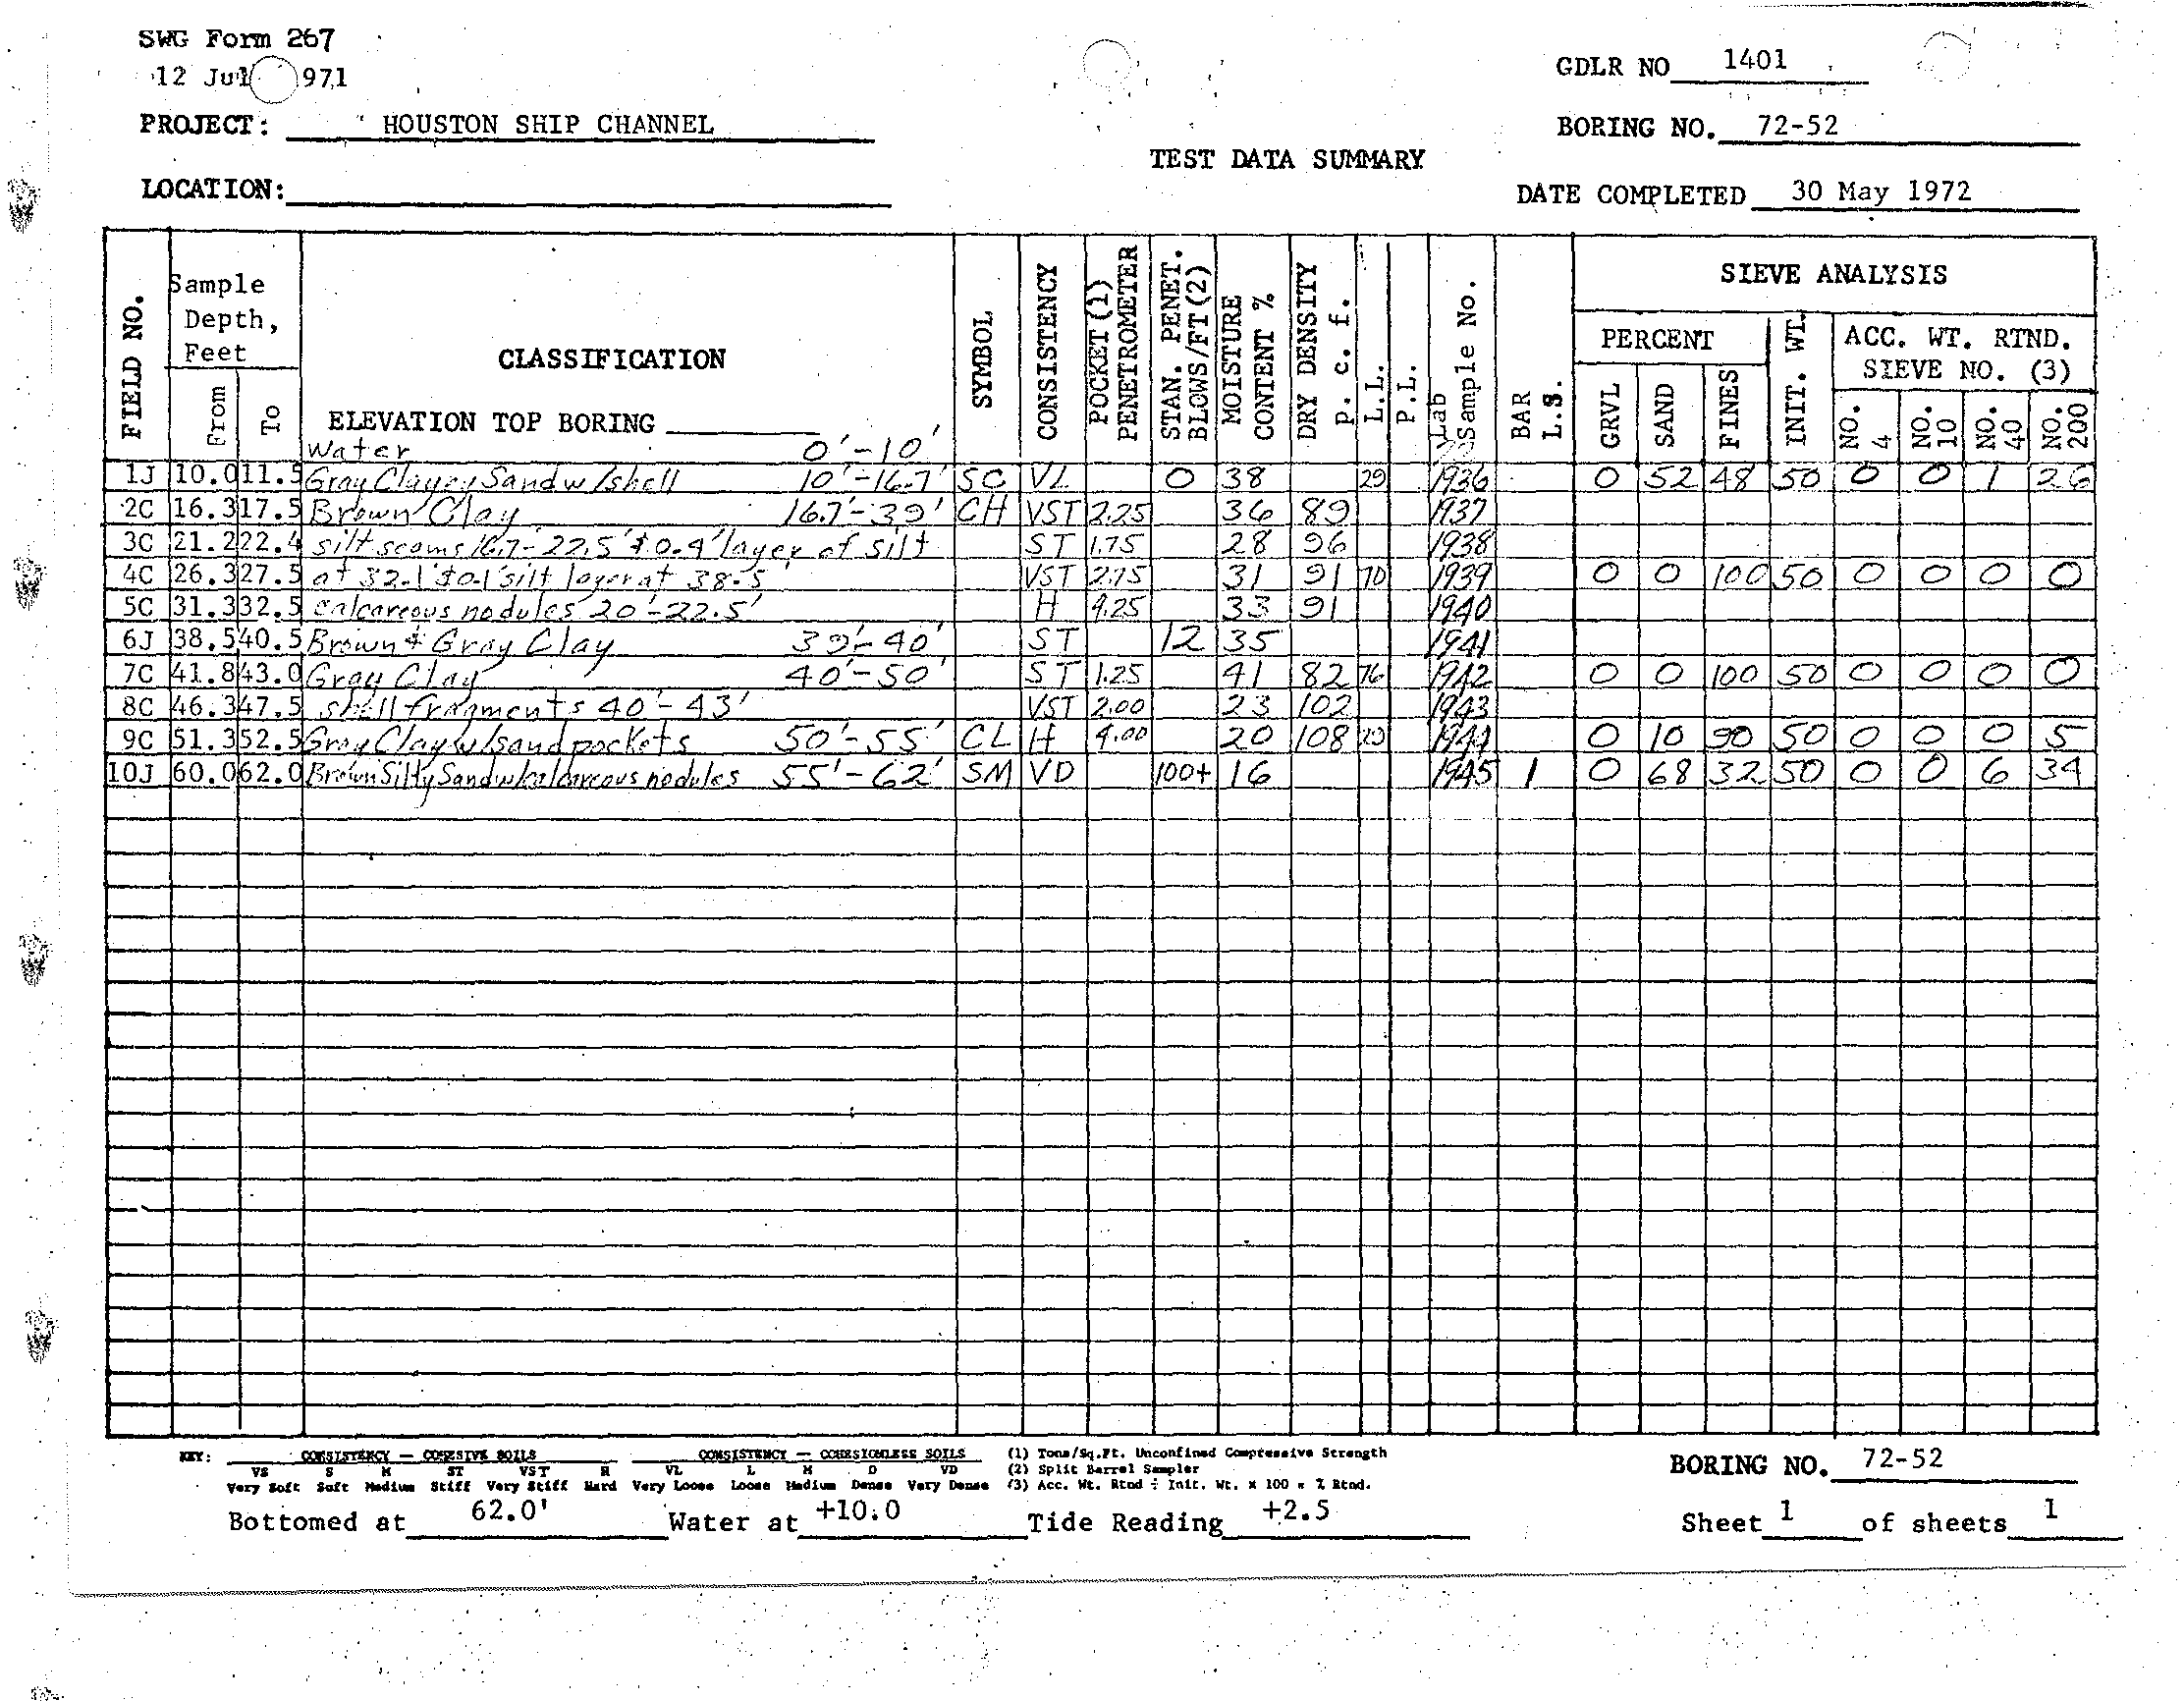 SWG Form 267
12 Jul 1971
GDLR NO 1401
PROJECT: HOUSTON SHIP CHANNEL
BORING NO. 72-52
TEST DATA SUMMARY
LOCATION:
DATE COMPLETED 30 May 1972
FIELD NO. Sample Depth, Feet From To CLASSIFICATION ELEVATION TOP BORING SYMBOL CONSISTENCY POCKET (1) PENETROMETER STAN. PENET. BLOWS/FT (2) MOISTURE CONTENT % DRY DENSITY p. c. f. L.L. P.L. Lab Sample No. BAR L.S. SIEVE ANALYSIS PERCENT GRVL SAND FINES INIT. WT. ACC. WT. RTND. SIEVE NO. (3) NO. 4 NO. 10 NO. 40 NO. 200
Water 0'-10'
1J 10.0 11.5 Gray Clayey Sand w/shell 10'-16.7' SC VL 0 38 29 1936 0 52 48 50 0 0 1 26
2C 16.3 17.5 Brown Clay 16.7'-39' CH VST 2.25 36 89 1937
3C 21.2 22.4 silt seams 16.7-22.5' & 0.4' layer of silt ST 1.75 28 96 1938
4C 26.3 27.5 at 32.1' & 0.1' silt layer at 38.5' VST 2.75 31 91 70 1939 0 0 100 50 0 0 0 0
5C 31.3 32.5 calcareous nodules 20'-22.5' H 4.25 33 91 1940
6J 38.5 40.5 Brown & Gray Clay 39'-40' ST 12 35 1941
7C 41.8 43.0 Gray Clay 40'-50' ST 1.25 41 82 76 1942 0 0 100 50 0 0 0 0
8C 46.3 47.5 shell fragments 40'-43' VST 2.00 23 102 1943
9C 51.3 52.5 Gray Clay w/sand pockets 50'-55' CL H 4.00 20 108 1944 0 10 90 50 0 0 0 5
10J 60.0 62.0 Brown Silty Sand w/calcareous nodules 55'-62' SM VD 100+ 16 1945 1 0 68 32 50 0 0 6 34
KEY: CONSISTENCY — COHESIVE SOILS CONSISTENCY — COHESIONLESS SOILS (1) Tons/Sq.Ft. Unconfined Compressive Strength
VS S M ST VST H VL L M D VD (2) Split Barrel Sampler
Very Soft Soft Medium Stiff Very Stiff Hard Very Loose Loose Medium Dense Very Dense (3) Acc. Wt. Rtnd ÷ Init. Wt. x 100 = % Rtnd.
BORING NO. 72-52
Bottomed at 62.0' Water at +10.0 Tide Reading +2.5 Sheet 1 of sheets 1